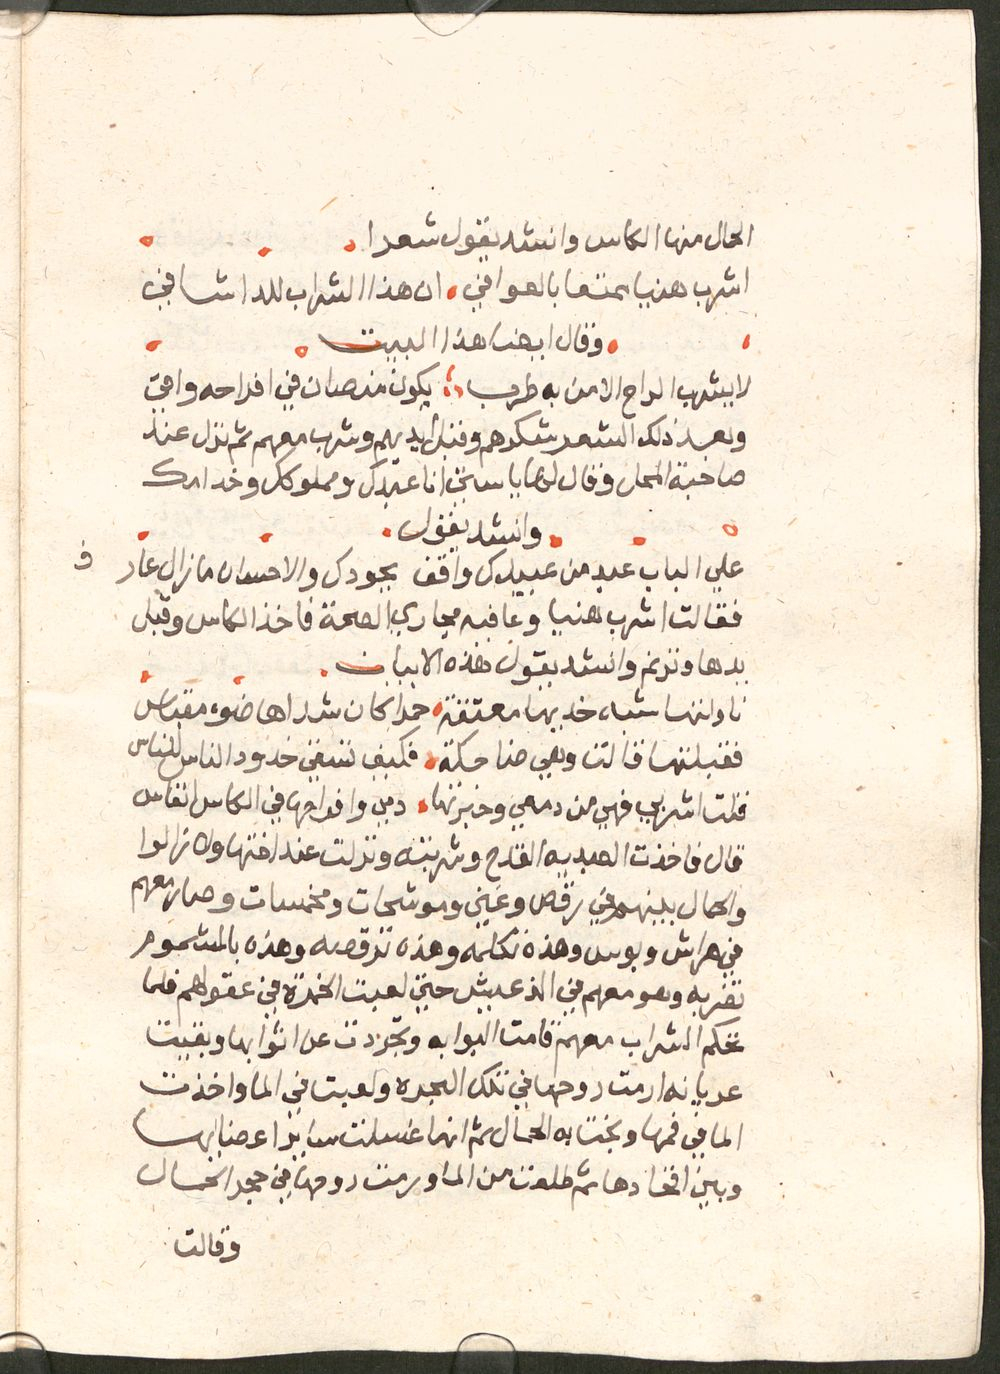 الحال منها الكاس وانشد يقول شعرا
اشرب هنيا ممتعا بالعوافي ان هذا الشراب للدا شافي
وقال ايضا هذا البيت
لا يشرب الراح الا من به طرب يكون منصان في افراحه وافي
وبعد ذلك الشعر شكرهم وقبل ايديهم وشرب معهم ثم نزل عند
صاحبة المحل وقال لها يا ستي انا عبدك ومملوكك وخدامك
وانشد يقول
علي الباب عبد من عبيدك واقف بجودك والاحسان ما زال عارف
فقالت اشرب هنيا وعافيه مجاري الصحة فاخذ الكاس وقبل
يدها وترنم وانشد يقول هذه الابيات
ناولتها شبه خديها معتقة حمرا كان شدراها ضوء مقباس
فقبلتها قالت وهي ضاحكة فكيف تسقي خدود الناس للناس
قلت اشربي فهي من دمعي وخبزتها دمي وافواجها في الكاس انفاس
قال فاخذت الصبيه القدح وشربته ونزلت عند اختها ولا زالوا
والحمال بينهم في رقص وغني وموشحات ومخمسات وصار معهم
في هراش وبوس وهذه تكلمه وهذه ترقصه وهذه بالمشموم
تضربه وهو معهم في الذ عيش حتي لعبت الخمرة في عقولهم فلما
تحكم الشراب معهم قامت البوابه وتجردت عن اثوابها وبقيت
عريانه ارمت روحها في تلك البحره ولعبت في الما واخذت
الما في فمها وبخت به الحمال ثم انها غسلت ساير اعضايها
وبين افخادها ثم طلعت من الما ورمت روحها في حجر الحمال
وقالت